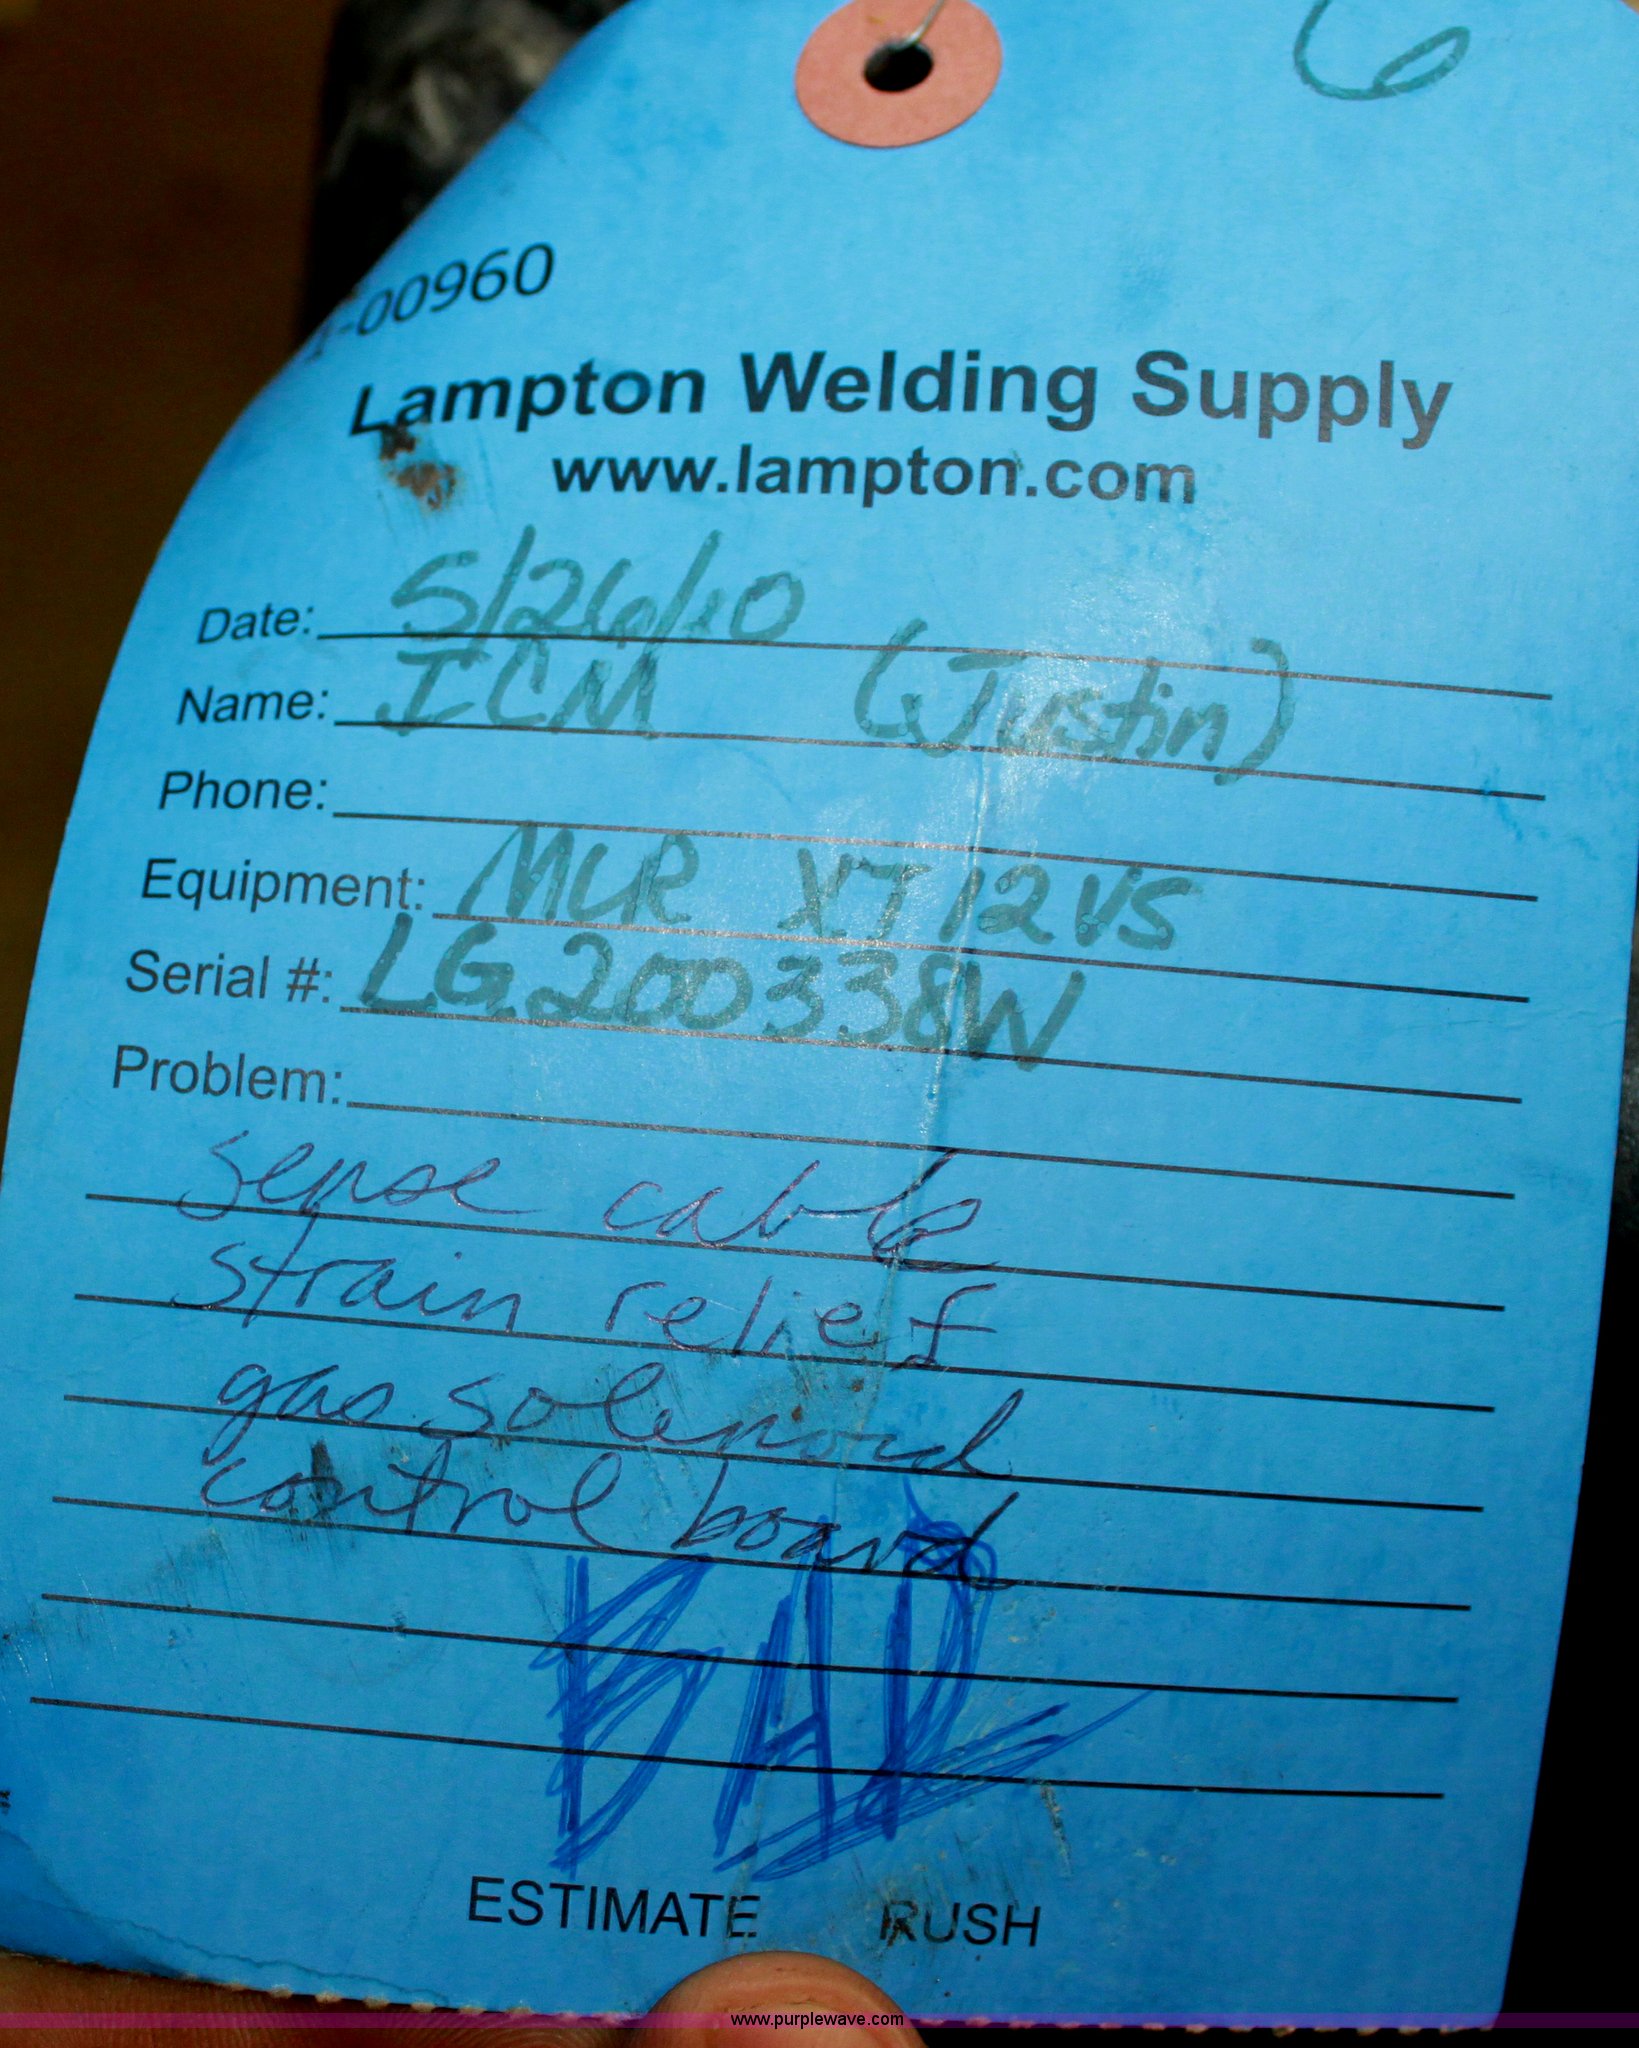 6
-00960
Lampton Welding Supply
www.lampton.com
Date: 5/26/10
Name: ICM (Justin)
Phone:
Equipment: MLR XT 12VS
Serial #: LG200338W
Problem:
sense cable
strain relief
gas solenoid
control board
BAD
ESTIMATE RUSH
www.purplewave.com